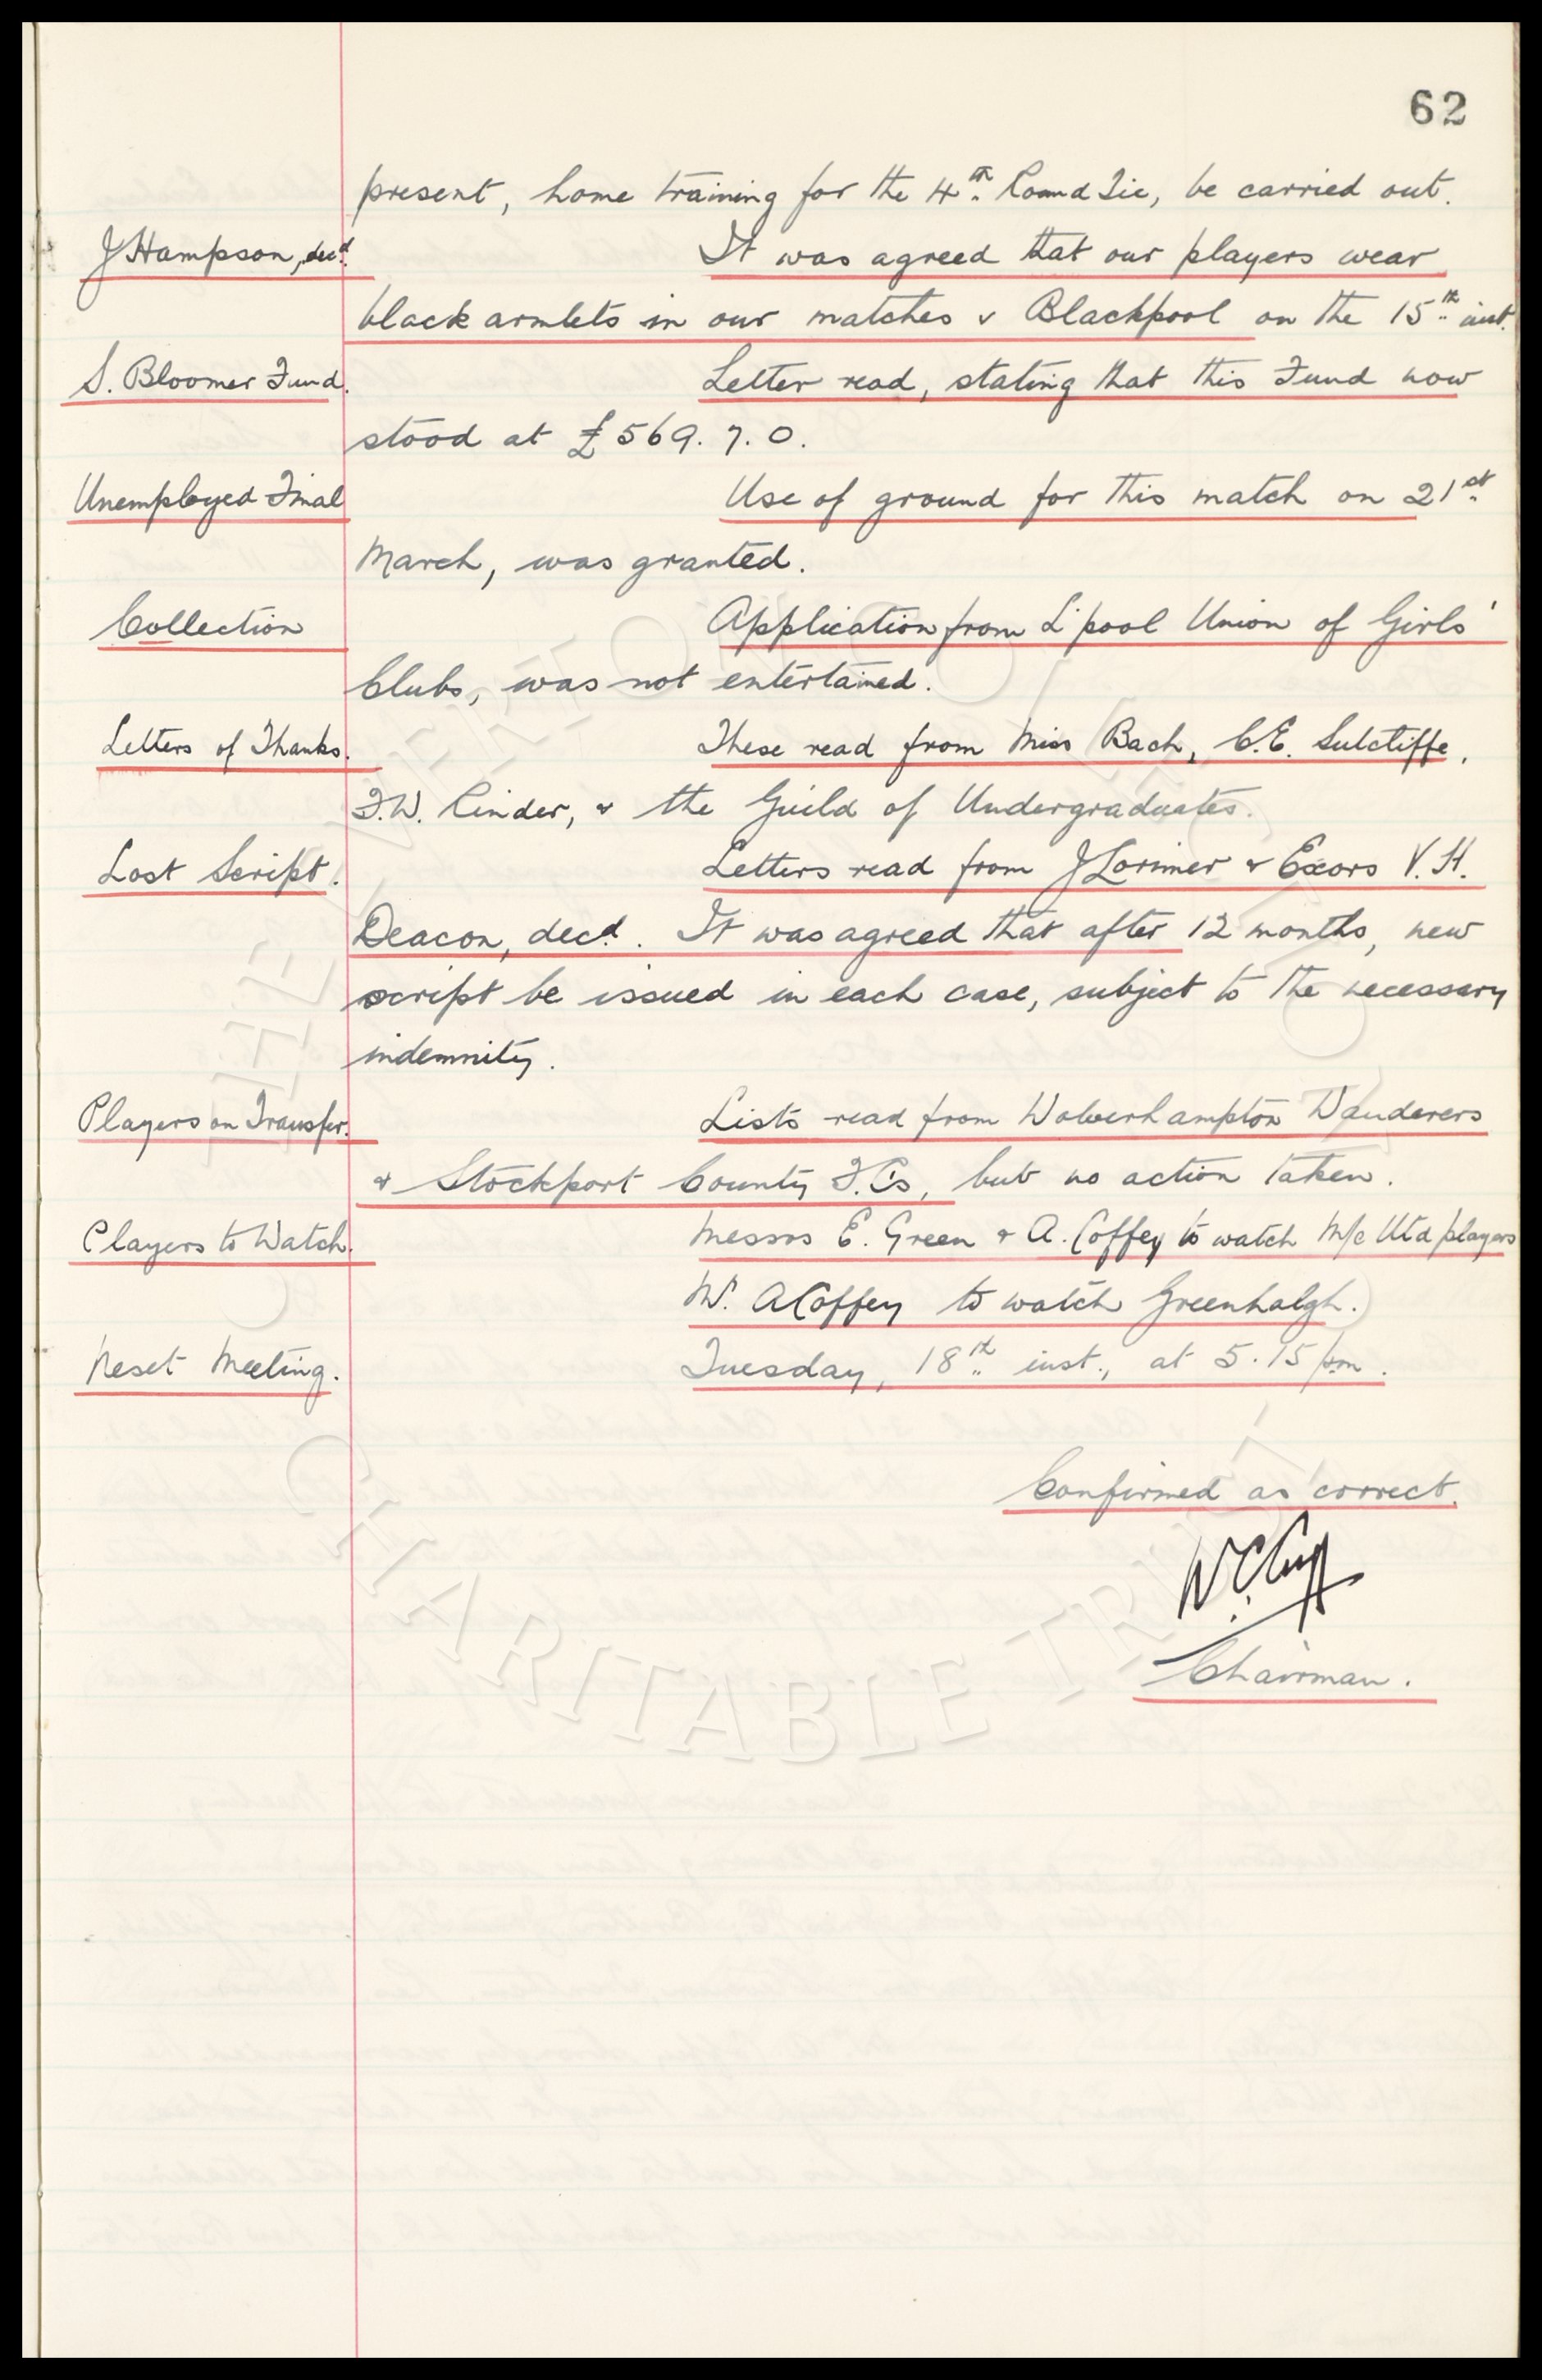 62
present, home training for the 4th Round Tie, be carried out.
J Hampson, decd. It was agreed that our players wear
black armlets in our matches v Blackpool on the 15th inst.
S. Bloomer Fund. Letter read, stating that this Fund now
stood at £569. 7. 0.
Unemployed Final Use of ground for this match on 21st
March, was granted.
Collection Application from L'pool Union of Girls'
Clubs, was not entertained.
Letters of Thanks. These read from Miss Bach, C.E. Sutcliffe,
F.W. Rinder, & the Guild of Undergraduates.
Lost Script. Letters read from J Lorimer & Exors V. H.
Deacon, decd. It was agreed that after 12 months, new
script be issued in each case, subject to the necessary
indemnity.
Players on Transfer. Lists read from Wolverhampton Wanderers
& Stockport County F.Cs, but no action taken.
Players to Watch. Messrs E. Green & A. Coffey to watch M/c Utd players
Mr. A Coffey to watch Greenhalgh.
Next Meeting. Tuesday, 18th inst., at 5.15 pm.
Confirmed as correct.
W.C. Cuff
Chairman.
THE EVERTON COLLECTION
CHARITABLE TRUST